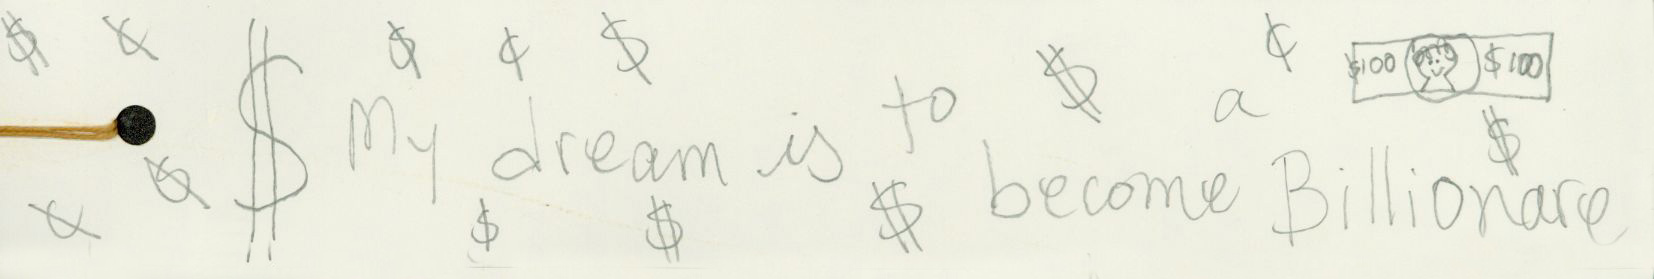 $ ¢ $ $ ¢ $ $ ¢ $100 $100
$ My dream is to become a Billionare
¢ $ $ $ $ $